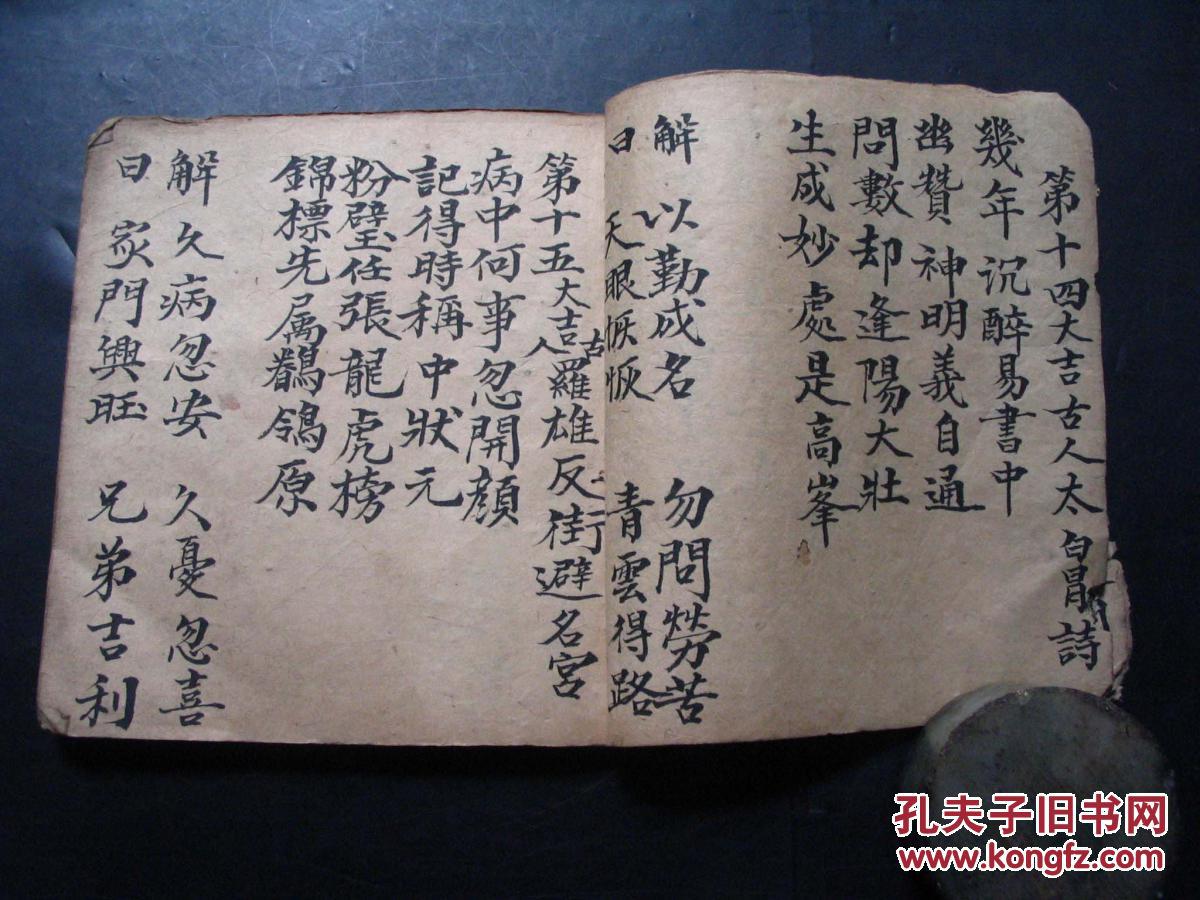 第十四大吉古人太白胃詩
幾年沉醉易書中
幽贊神明義自通
問數却逢陽大壯
生成妙處是高峯
解 以勤成名 勿問勞苦
曰 天眼恢恢 青雲得路
第十五大吉古人羅雄反街避名宮
病中何事忽開顔
記得時稱中狀元
粉壁任張龍虎榜
錦標先属鶺鴒原
解 久病忽安 久憂忽喜
曰 家門興旺 兄弟吉利
孔夫子旧书网
www.kongfz.com